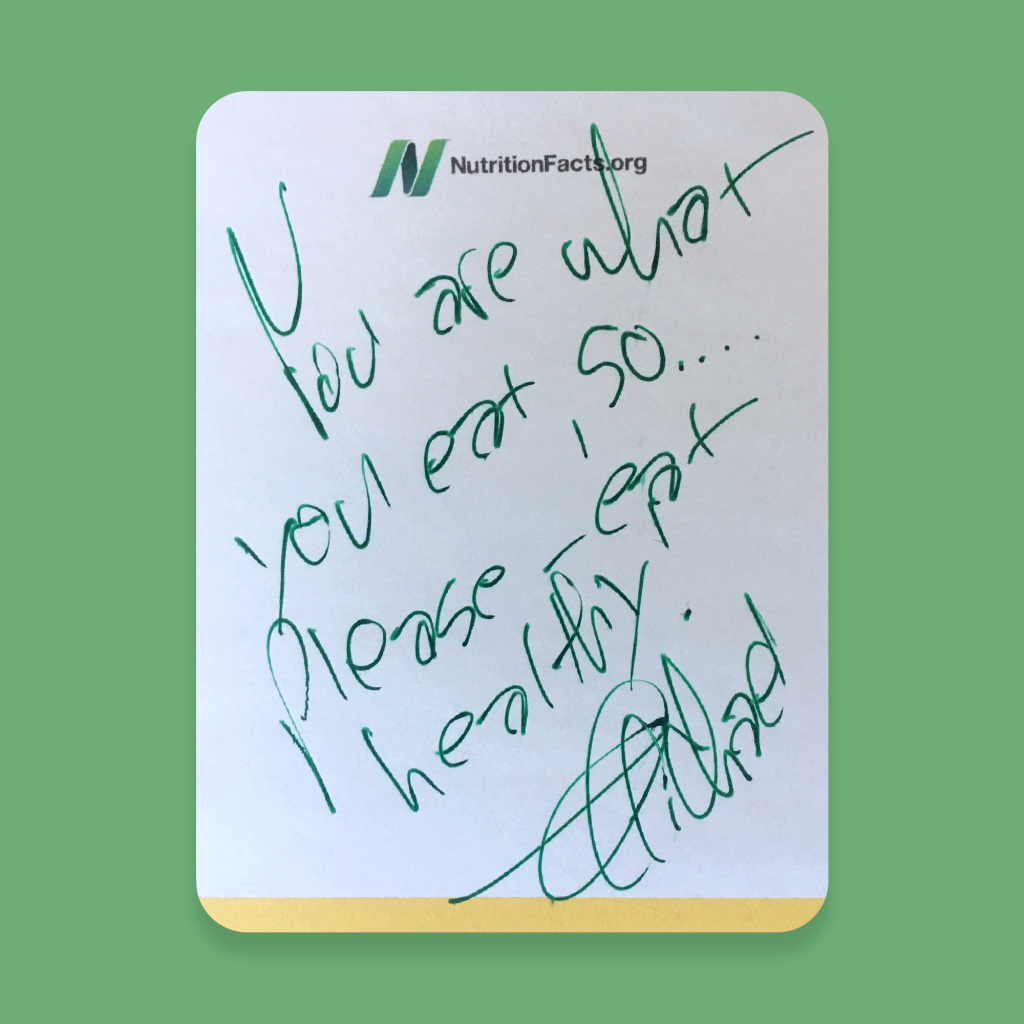 NutritionFacts.org
You are what
you eat, so....
please eat
healthy.
Michael